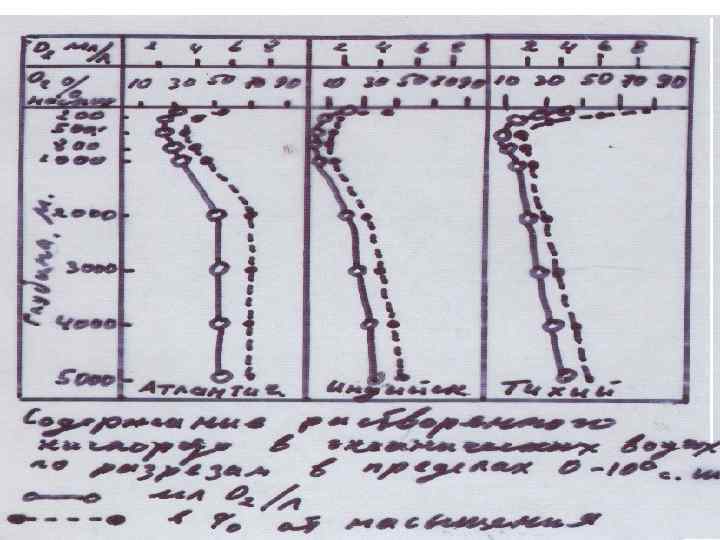 O₂ мл/л 2 4 6 8 2 4 6 8 2 4 6 8
O₂ % 10 30 50 70 90 10 30 50 70 90 10 30 50 70 90
200
500
800
1000
2000
3000
4000
5000
Глубина, м.
Атлантич Индийск Тихий
Содержание растворенного
кислорода в океанических водах
по разрезам в пределах 0-10° с. ш
мл O₂/л
в % от насыщения